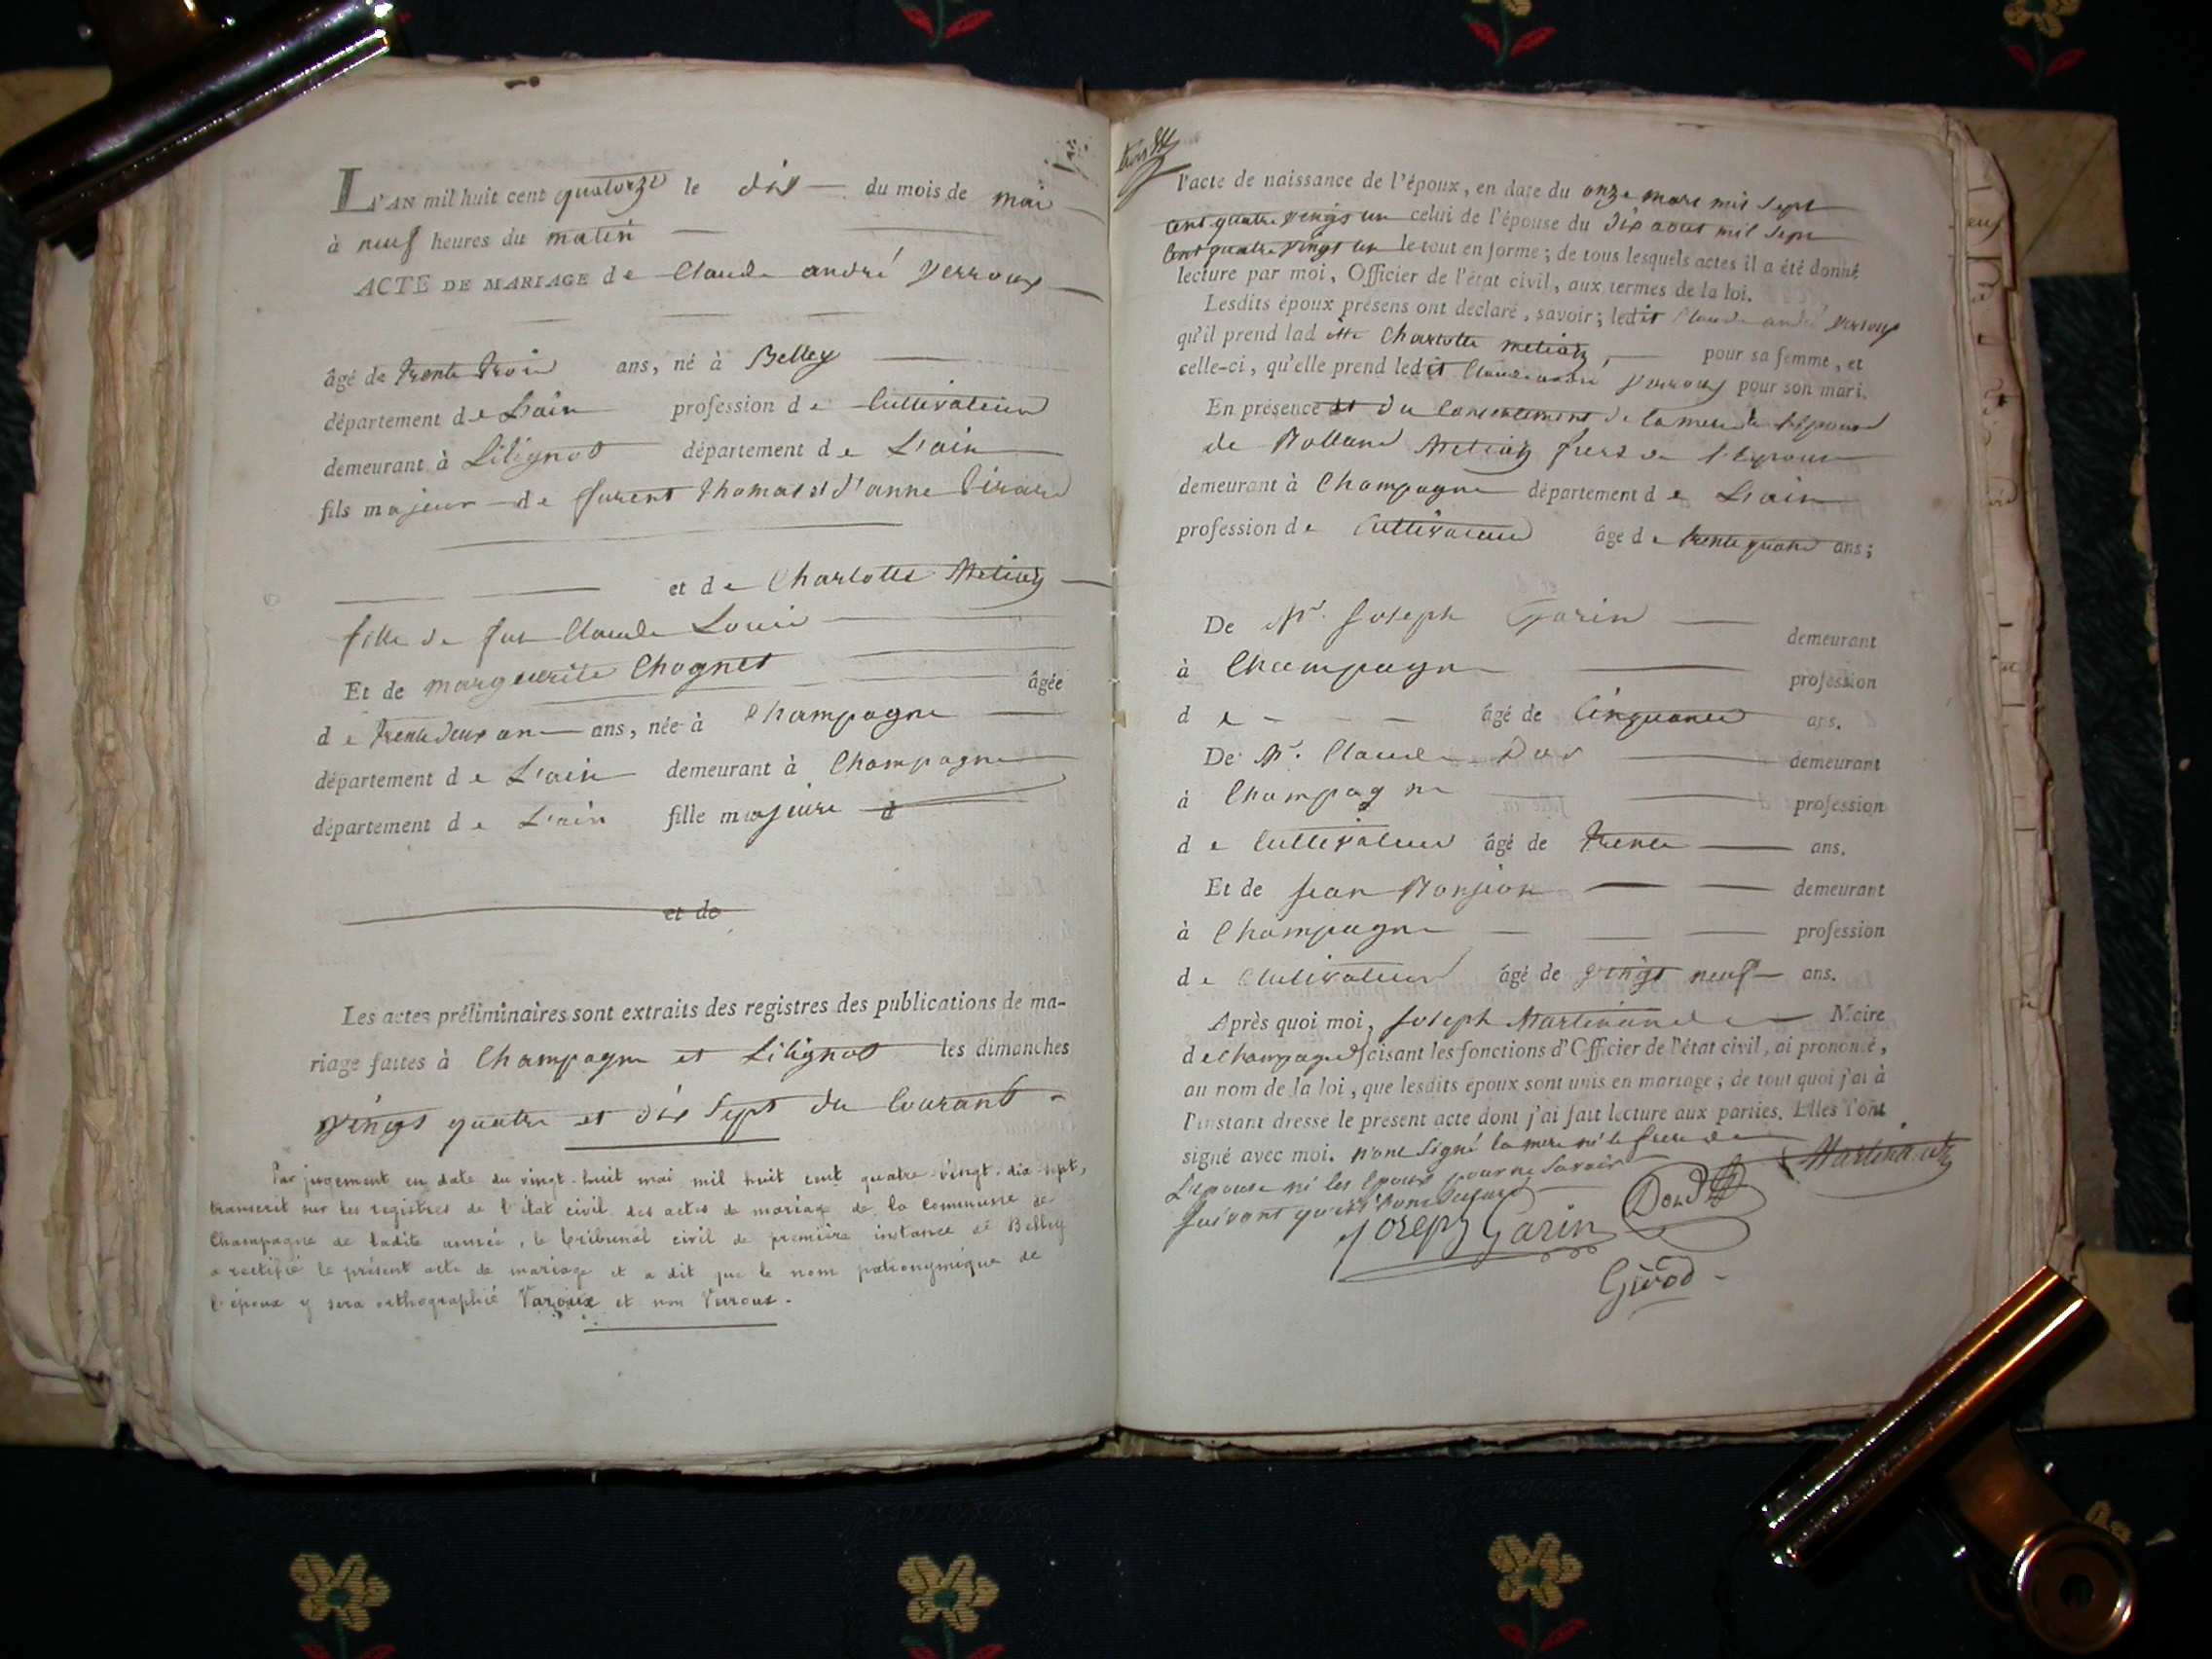 L'AN mil huit cent quatorze le dix du mois de mai
à neuf heures du matin
ACTE DE MARIAGE de Claude andré Verroux
âgé de trente trois ans, né à Belley
département de L'ain profession de Cultivateur
demeurant à Lilignod département de L'ain
fils majeur de furent Thomas et d'anne
et de Charlotte
fille de feu Claude Louis
Et de marguerite Chognet âgée
de trente deux an ans, née à Champagne
département de L'ain demeurant à Champagne
département de L'ain fille majeure d
et de
Les actes préliminaires sont extraits des registres des publications de ma-
riage faites à Champagne et Lilignod les dimanches
vingt quatre et dix sept du Courant
Par jugement en date du vingt-huit mai mil huit cent quatre-vingt-dix-sept,
transcrit sur les registres de l'état civil des actes de mariage de la commune de
Champagne de ladite année, le tribunal civil de première instance de Belley
a rectifié le présent acte de mariage et a dit que le nom patronymique de
l'époux y sera orthographié Varoux et non Verroux.
l'acte de naissance de l'époux, en date du onze mars mil sept
cent quatre vingt un celui de l'épouse du dix aout mil sept
cent quatre vingt un le tout en forme; de tous lesquels actes il a été donné
lecture par moi, Officier de l'état civil, aux termes de la loi.
Lesdits époux présens ont déclaré, savoir; ledit Claude andré Verroux
qu'il prend lad itte Charlotte pour sa femme, et
celle-ci, qu'elle prend ledit Claude andré Verroux pour son mari.
En présence et du Consentement de la mere de l'épouse
de Rolland frere de l'Epouse
demeurant à Champagne département de L'ain
profession de Cultivateur âgé de trente quatre ans;
De Mr. Joseph Garin demeurant
à Champagne profession
d e âgé de Cinquante ans.
De Mr. Claude demeurant
à Champagne profession
de Cultivateur âgé de trente ans.
Et de Jean demeurant
à Champagne profession
de Cultivateur âgé de vingt neuf ans.
Après quoi moi, Joseph Martinand Maire
de Champagne faisant les fonctions d'Officier de l'état civil, ai prononcé,
au nom de la loi, que lesdits époux sont unis en mariage; de tout quoi j'ai à
l'instant dressé le présent acte dont j'ai fait lecture aux parties. Elles l'ont
signé avec moi. n'ont signé la mere ni le frere de
L'epouse ni les Epoux pour ne savoir
Martinand
Joseph Garin